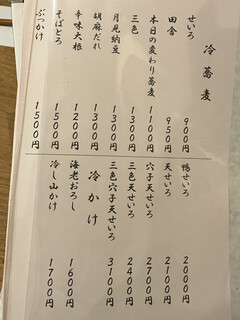 冷蕎麦
せいろ 900円
田舎 950円
本日の変わり蕎麦 1100円
三色 1300円
月見納豆 1300円
胡麻だれ 1300円
辛味大根 1200円
そばとろ 1500円
ぶっかけ 1500円
鴨せいろ 2000円
天せいろ 2100円
穴子天せいろ 2700円
三色天せいろ 2400円
三色穴子天せいろ 3100円
冷かけ
海老おろし 1600円
冷し山かけ 1700円